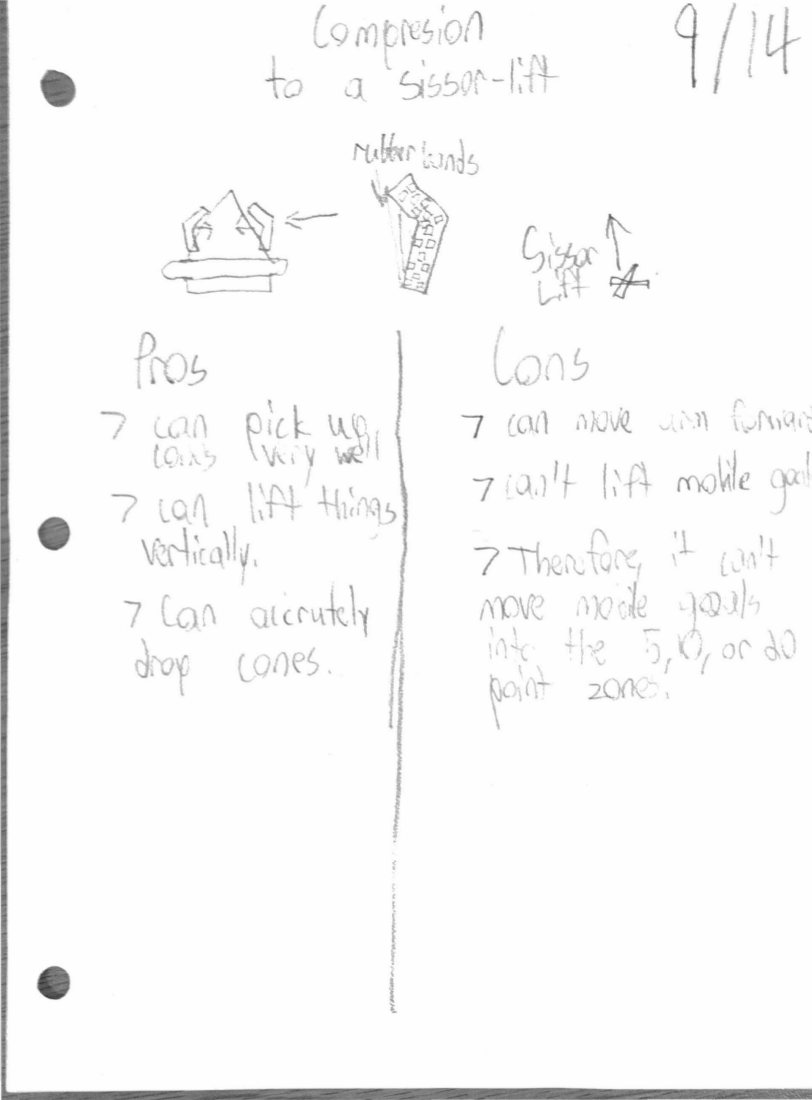 Compresion
to a sissor-lift
9/14
rubber bands
Sissor
Lift
Pros
Cons
7 can pick up
cones very well
7 can lift things
vertically.
7 Can accrutely
drop cones.
7 can move arm forward
7 can't lift mobile goal
7 Therefore, it can't
move mobile goals
into the 5, 10, or 20
point zones.